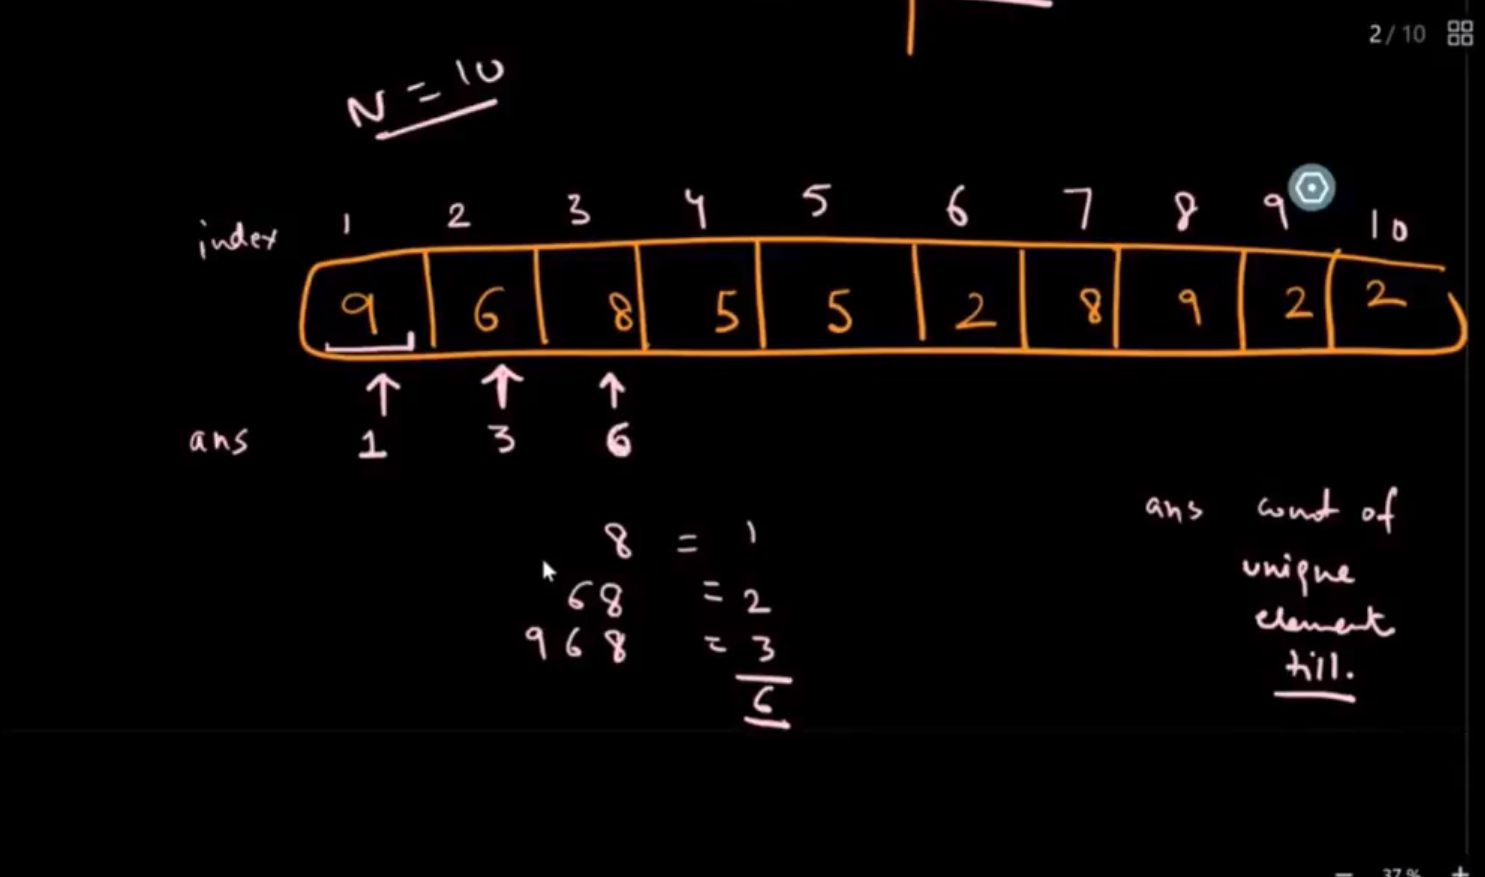 2 / 10
N = 10
index 1 2 3 4 5 6 7 8 9 10
9 6 8 5 5 2 8 9 2 2
ans 1 3 6
8 = 1
6 8 = 2
9 6 8 = 3
6
ans count of
unique
element
till.
37 %